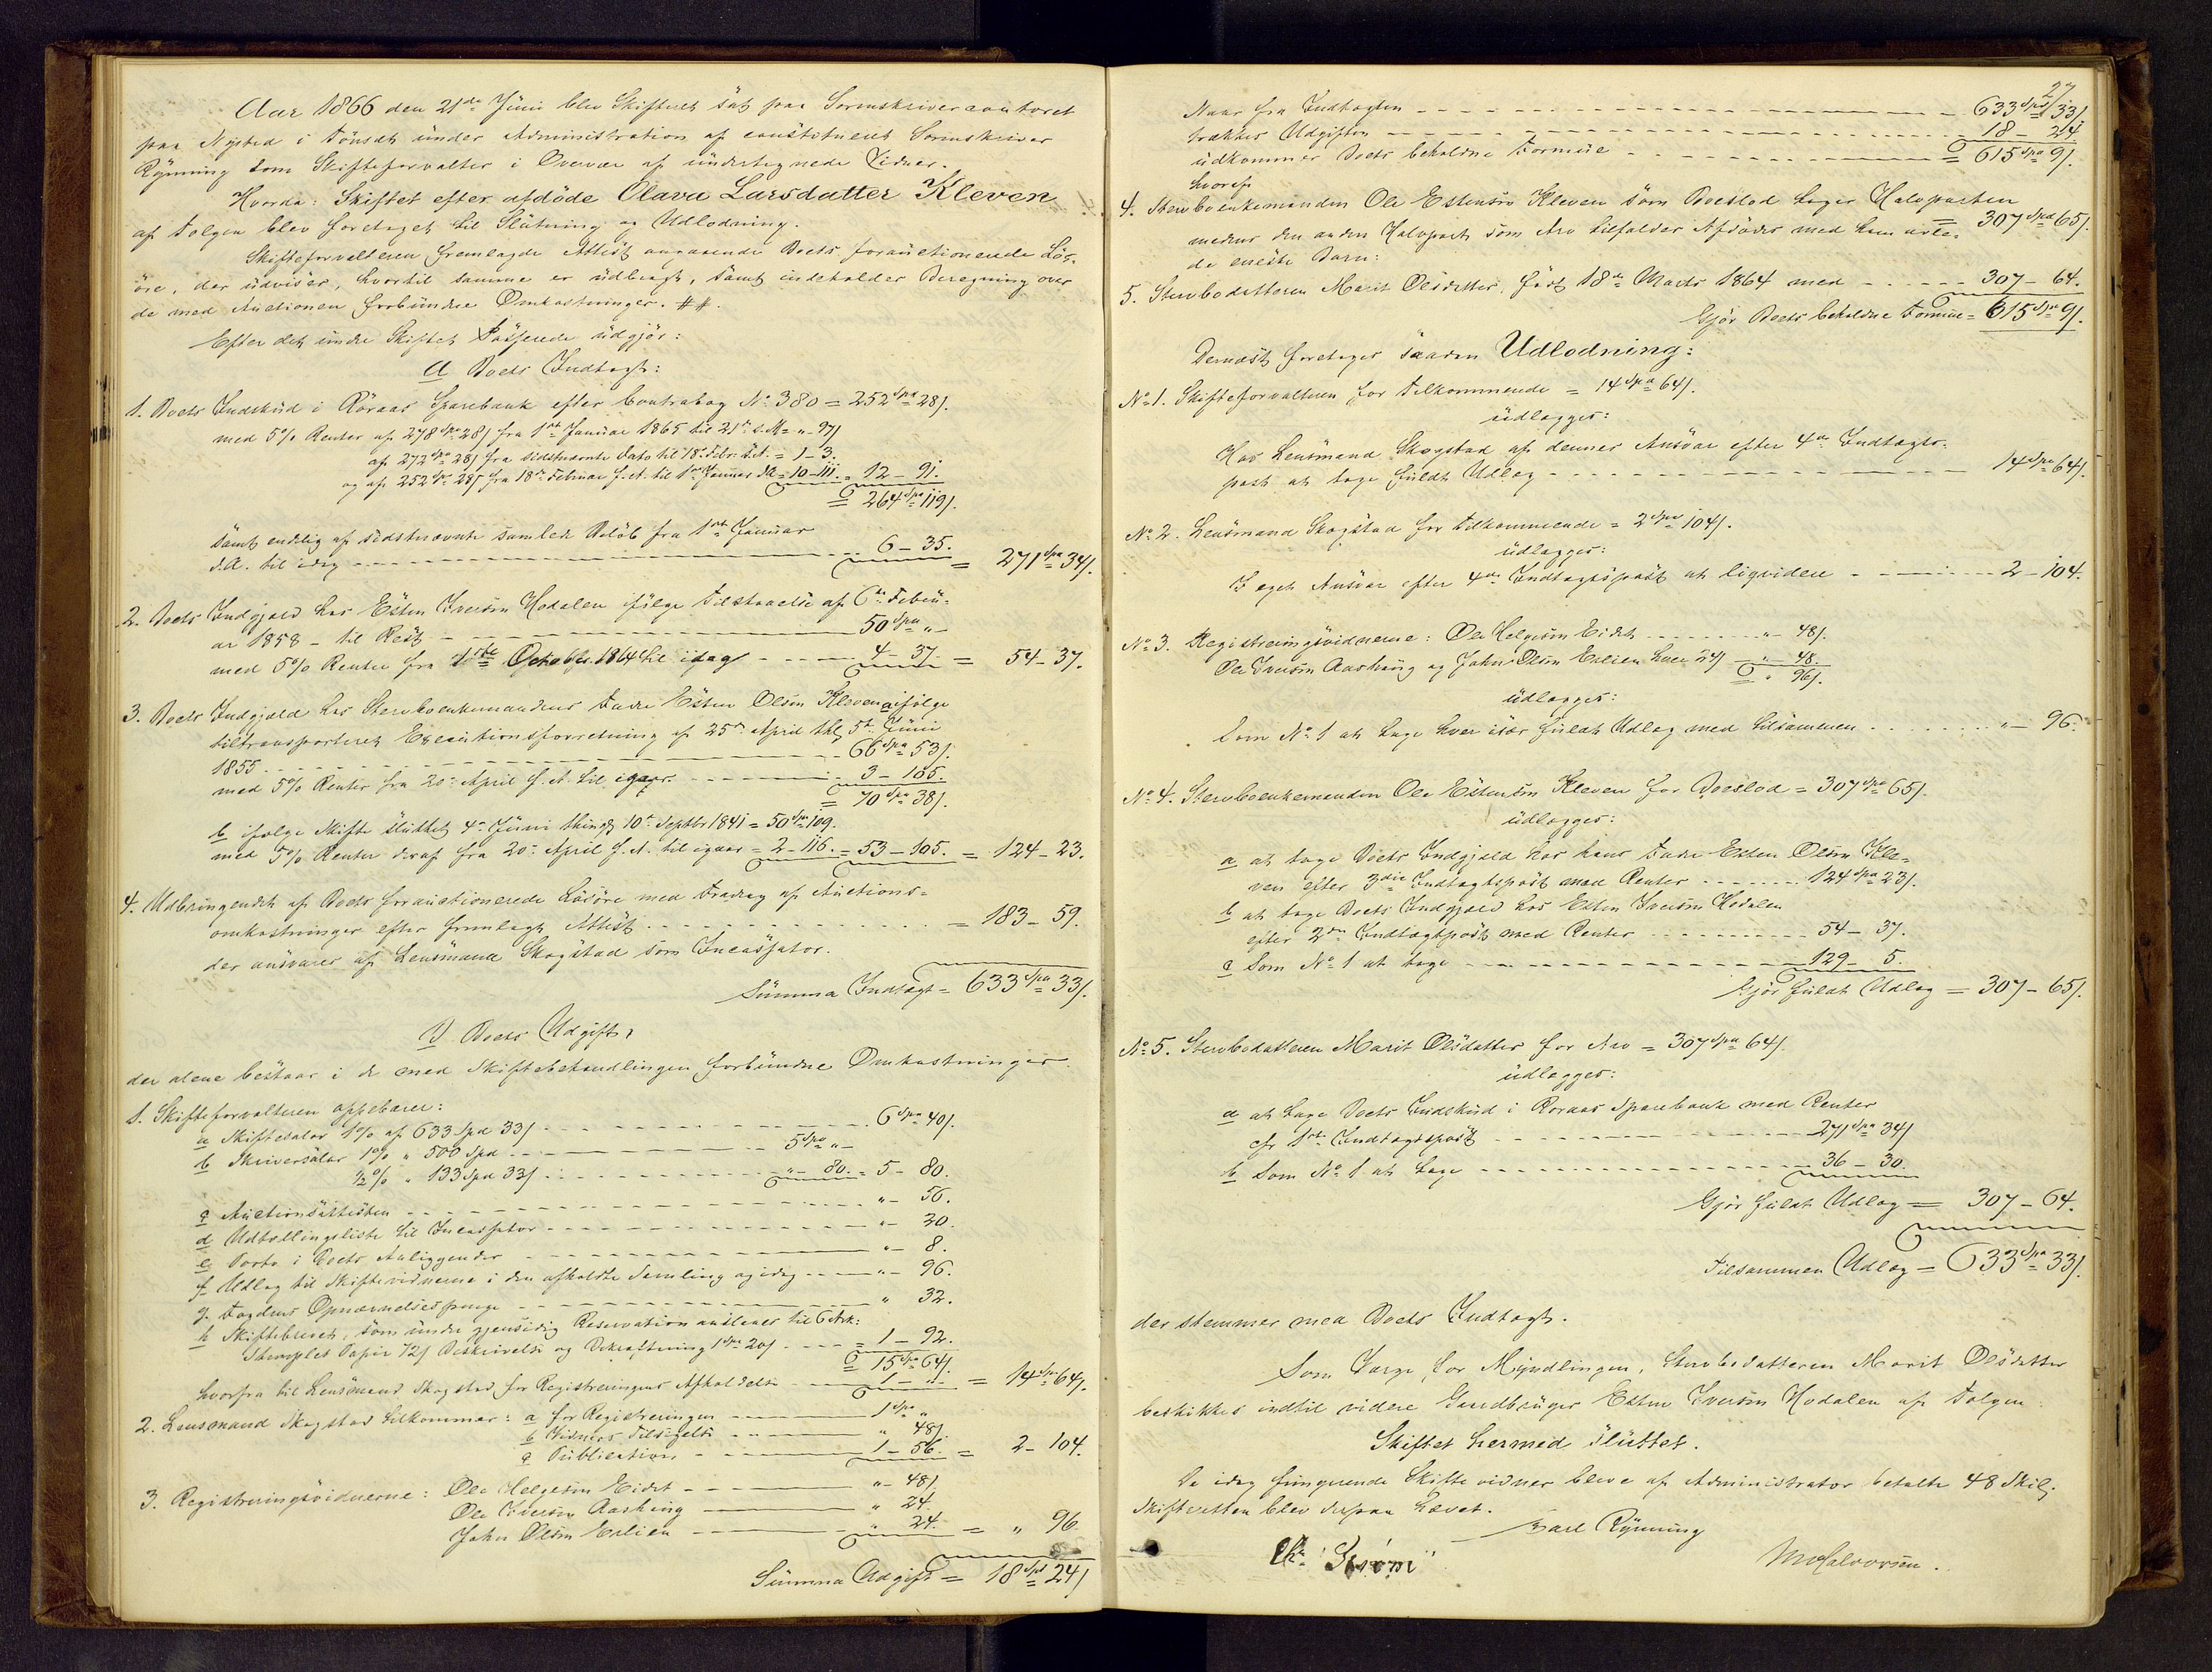 Aar 1866 den 21de Juni blev Skifteret sat paa Sorenskrivercontoret
paa Nysted i Tönsæt under Administration af constitueret Sorenskriver
Rynning som Skifteforvalter i Overvær af undertegnede Vidner.
Hvorda: Skiftet efter afdöde Olava Larsdatter Kleven
af Tolgen blev foretaget til Slutning og Udlodning.
Skifteforvalteren fremlagde Attest angaaende Boets forauctionerede Lös-
öre, der udviser, hvortil samme er udbragt, samt indeholder Beregning over
de med Auctionen forbundne Omkostninger. ##.
Efter det under Skiftet Passerede udgjör:
A Boets Indtægt:
1. Boets Indskud i Röraas Sparebank efter Contrabog No 380 = 252 Spd 28 s.
med 5% Renter af 278 Spd 28 s fra 1ste Januar 1865 til 21de s. M. = " - 97 s
af 272 Spd 28 s fra sidstnævnte Dato til 18de Febr. s.A. = 1 - 3.
og af 252 Spd 28 s fra 18de Februar f.A. til 1ste Januar d.A. = 10 - 111. = 12 - 91.
= 264 Spd 119 s.
samt endelig af sidstnævnte samlede Belöb fra 1ste Januar
d.A. til idag - - - 6 - 35. = 271 Spd 34 s.
2. Boets Indgjæld hos Esten Iversen Hodalen ifölge Tilstaaelse af 6te Febru-
ar 1858 - til Rest - - - 50 Spd " -
med 5% Renter fra 1ste October 1864 til idag - - - 4 - 37. = 54 - 37.
3. Boets Indgjæld hos Stervboenkemandens Fader Esten Olsen Kleven a ifölge
tiltransporteret Executionsforretning af 25de April thl. 5te Juni
1855 - - - 66 Spd 53 s.
med 5% Renter fra 20de April f.A. til igaar - - - 3 - 105.
= 70 Spd 38 s.
b ifölge Skifte sluttet 4de Juni thingl. 10de Septbr 1841 = 50 Spd 109.
med 5% Renter deraf fra 20de April f.A. til igaar = 2 - 116. = 53 - 105. = 124 - 23.
4. Udbringendet af Boets forauctionerede Lösöre med Fradrag af Auctions-
omkostninger efter fremlagt Attest - - - = 183 - 59.
der ansvares af Lensmand Skogstad som Incassator.
Summa Indtægt = 633 Spd 33 s.
B Boets Udgift,
der alene bestaar i de med Skiftebehandlingen forbundne Omkostninger.
1. Skifteforvalteren oppebærer:
a Skiftesalær 1% af 633 Spd 33 s - - - 6 Spd 40 s.
b Skriversalær 1% " 500 Spd - - - 5 Spd " -
1/2 % " 133 Spd 33 s - - - " - 80. = 5 - 80.
c Auctionsattesten - - - " - 56.
d Udtællingsliste til Incassator - - - " - 30.
e Porto i Boets Anliggender - - - " - 8.
f Udlæg til Skiftevidnerne i den afholdte Samling og idag - - - " - 96.
g. Fogdens Opnævnelsespenge - - - " 32.
h Skiftebrevet, som under gjensidig Reservation ansees til 6 Ark:
Stemplet Papir 72 s Beskrivelse og Bekræftning 1 Spd 20 s - - - = 1 - 92.
= 15 Spd 64 s.
hvorfra til Lensmand Skogstad for Registreringens Afholdelse - - - 1 - ". = 14 Spd 64 s.
2. Lensmand Skogstad tilkommer: a for Registreringen - - - 1 Spd "
b Vidners Tilsigelse - - - " 48 s.
c Publication - - - 1 - 56. = 2 - 104.
3. Registreringsvidnerne: Ole Helgesen Eidet - - - " - 48 s
Ole Iversen Aashaug - - - " 24.
John Olsen Erlien - - - " 24. = " 96.
Summa Udgift = 18 Spd 24 s
27
Naar fra Indtægten - - - 633 Spd 33 s.
trækkes Udgiften - - - 18 - 24
udkommer Boets beholdne Formue - - - = 615 Spd 9 s.
hvoraf
4. Stervboenkemanden Ole Estensen Kleven som Boeslod tager Halvparten = 307 Spd 65 s.
medens den anden Halvpart som Arv tilfalder Afdödes med ham avle-
de eneste Barn:
5. Stervbodatteren Marit Olsdatter, födt 18de Marts 1864 med - - - 307 - 64.
Gjör Boets beholdne Formue = 615 Spd 9 s.
Dernæst foretoges saadan Udlodning:
No 1. Skifteforvalteren for Tilkommende = 14 Spd 64 s.
udlægges:
Hos Lensmand Skogstad af dennes Ansvar efter 4de Indtægts-
post at tage fuldt Udlæg - - - 14 Spd 64 s.
No 2. Lensmand Skogstad for Tilkommende = 2 Spd 104 s.
udlægges:
I eget Ansvar efter 4de Indtægtspost at liqvidere - - - 2 - 104.
No 3. Registreringsvidnerne: Ole Helgesen Eidet - - - " - 48 s.
Ole Iversen Aashaug og John Olsen Erlien hver 24 s - " - 48.
" 96 s.
udlægges:
Som No 1 at tage hver især fuldt Udlæg med tilsammen - - - " - 96.
No 4. Stervboenkemanden Ole Estensen Kleven for Boeslod = 307 Spd 65 s.
udlægges:
a at tage Boets Indgjæld hos hans Fader Esten Olsen Kle-
ven efter 3die Indtægtspost med Renter - - - 124 Spd 23 s.
b at tage Boets Indgjæld hos Esten Iversen Hodalen
efter 2den Indtægtspost med Renter - - - 54 - 37.
c Som No 1 at tage - - - 129 - 5.
Gjör fuldt Udlæg = 307 - 65 s.
No 5. Stervbodatteren Marit Olsdatter for Arv = 307 Spd 64 s.
udlægges:
a at tage Boets Indskud i Roraas Sparebank med Renter
cfr 1ste Indtægtspost - - - 271 Spd 34 s
b Som No 1 at tage - - - 36 - 30.
Gjör fuldt Udlæg = 307 - 64.
Tilsammen Udlæg = 633 Spd 33 s.
der stemmer med Boets Indtægt.
Som Værge for Myndlingen, Stervbodatteren Marit Olsdatter
beskikkes indtil videre Gaardbruger Esten Iversen Hodalen af Tolgen.
Skiftet hermed sluttet.
De idag fungerende Skiftevidner bleve af Administrator betalte 48 Skil.
Skifteretten blev derpaa hævet.
Carl Rynning
MHalvorsen.